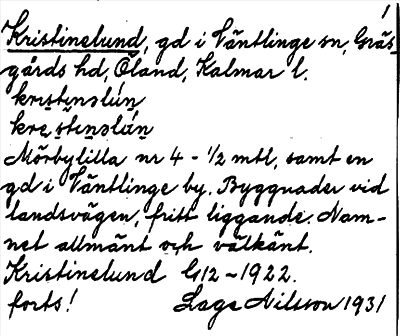 1
Kristinelund, gd i Väntlinge sn, Gräs-
gårds hd, Öland, Kalmar l.
kristenslún
kre stenslún
Mörbylilla nr 4 - 1/2 mtl, samt en
gd i Väntlinge by. Byggnader vid
landsvägen, fritt liggande. Nam-
net allmänt och välkänt.
Kristinelund G12 - 1922.
forts! Lage Nilsson 1931